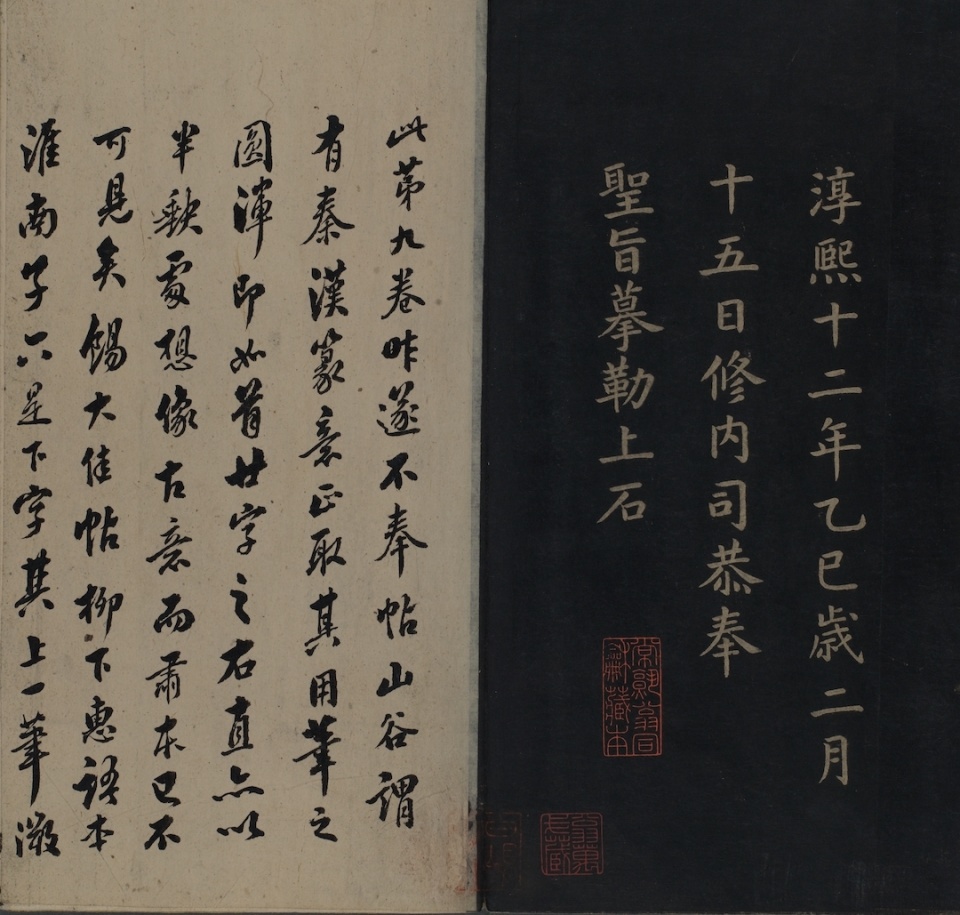 淳熙十二年乙巳歲二月
十五日修内司恭奉
聖旨摹勒上石
此第九卷昨遂不奉帖山谷謂
有秦漢篆意正取其用筆之
圓渾即如首廿字之右直亦以
半缺處想像古意而肅本已不
可見矣錫大佳帖柳下惠語本
淮南子只是下字其上一筆微
常熟翁同龢藏本
翁萬戈藏